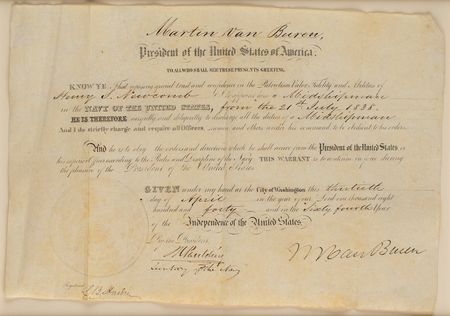 Martin Van Buren,
President of the United States of America.
TO ALL WHO SHALL SEE THESE PRESENTS GREETING.
KNOW YE, That reposing special trust and confidence in the Patriotism Valor, Fidelity and Abilities of
Henry S. Newcomb I appoint him a Midshipman
in the NAVY OF THE UNITED STATES, from the 21st July, 1838.
HE IS THEREFORE carefully and diligently to discharge all the duties of a Midshipman
And I do strictly charge and require all Officers, seamen and others under his command to be obedient to his orders.
And he is to obey the orders and directions which he shall receive from the President of the United States
his superior Officers according to the Rules and Discipline of the Navy THIS WARRANT to continue in force during
the pleasure of the President of the United States
GIVEN under my hand at the City of Washington this thirtieth
day of April in the year of our Lord one thousand eight
hundred and forty and in the Sixty fourth Year
of the Independence of the United States.
By the President,
M Van Buren
J K Paulding
Secretary of the Navy
Registered